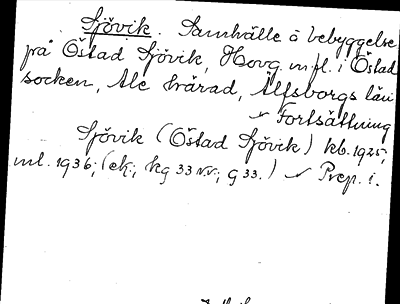 Sjövik. Samhälle å bebyggelse
på Östad Sjövik, Hovg. m.fl. i Östad
socken, Ale härad, Älfsborgs län
~ Fortsättning
Sjövik (Östad Sjövik) kb. 1925;
ml. 1936; (ek.; kg 33 NV.; g 33.) ~ Prep. i.